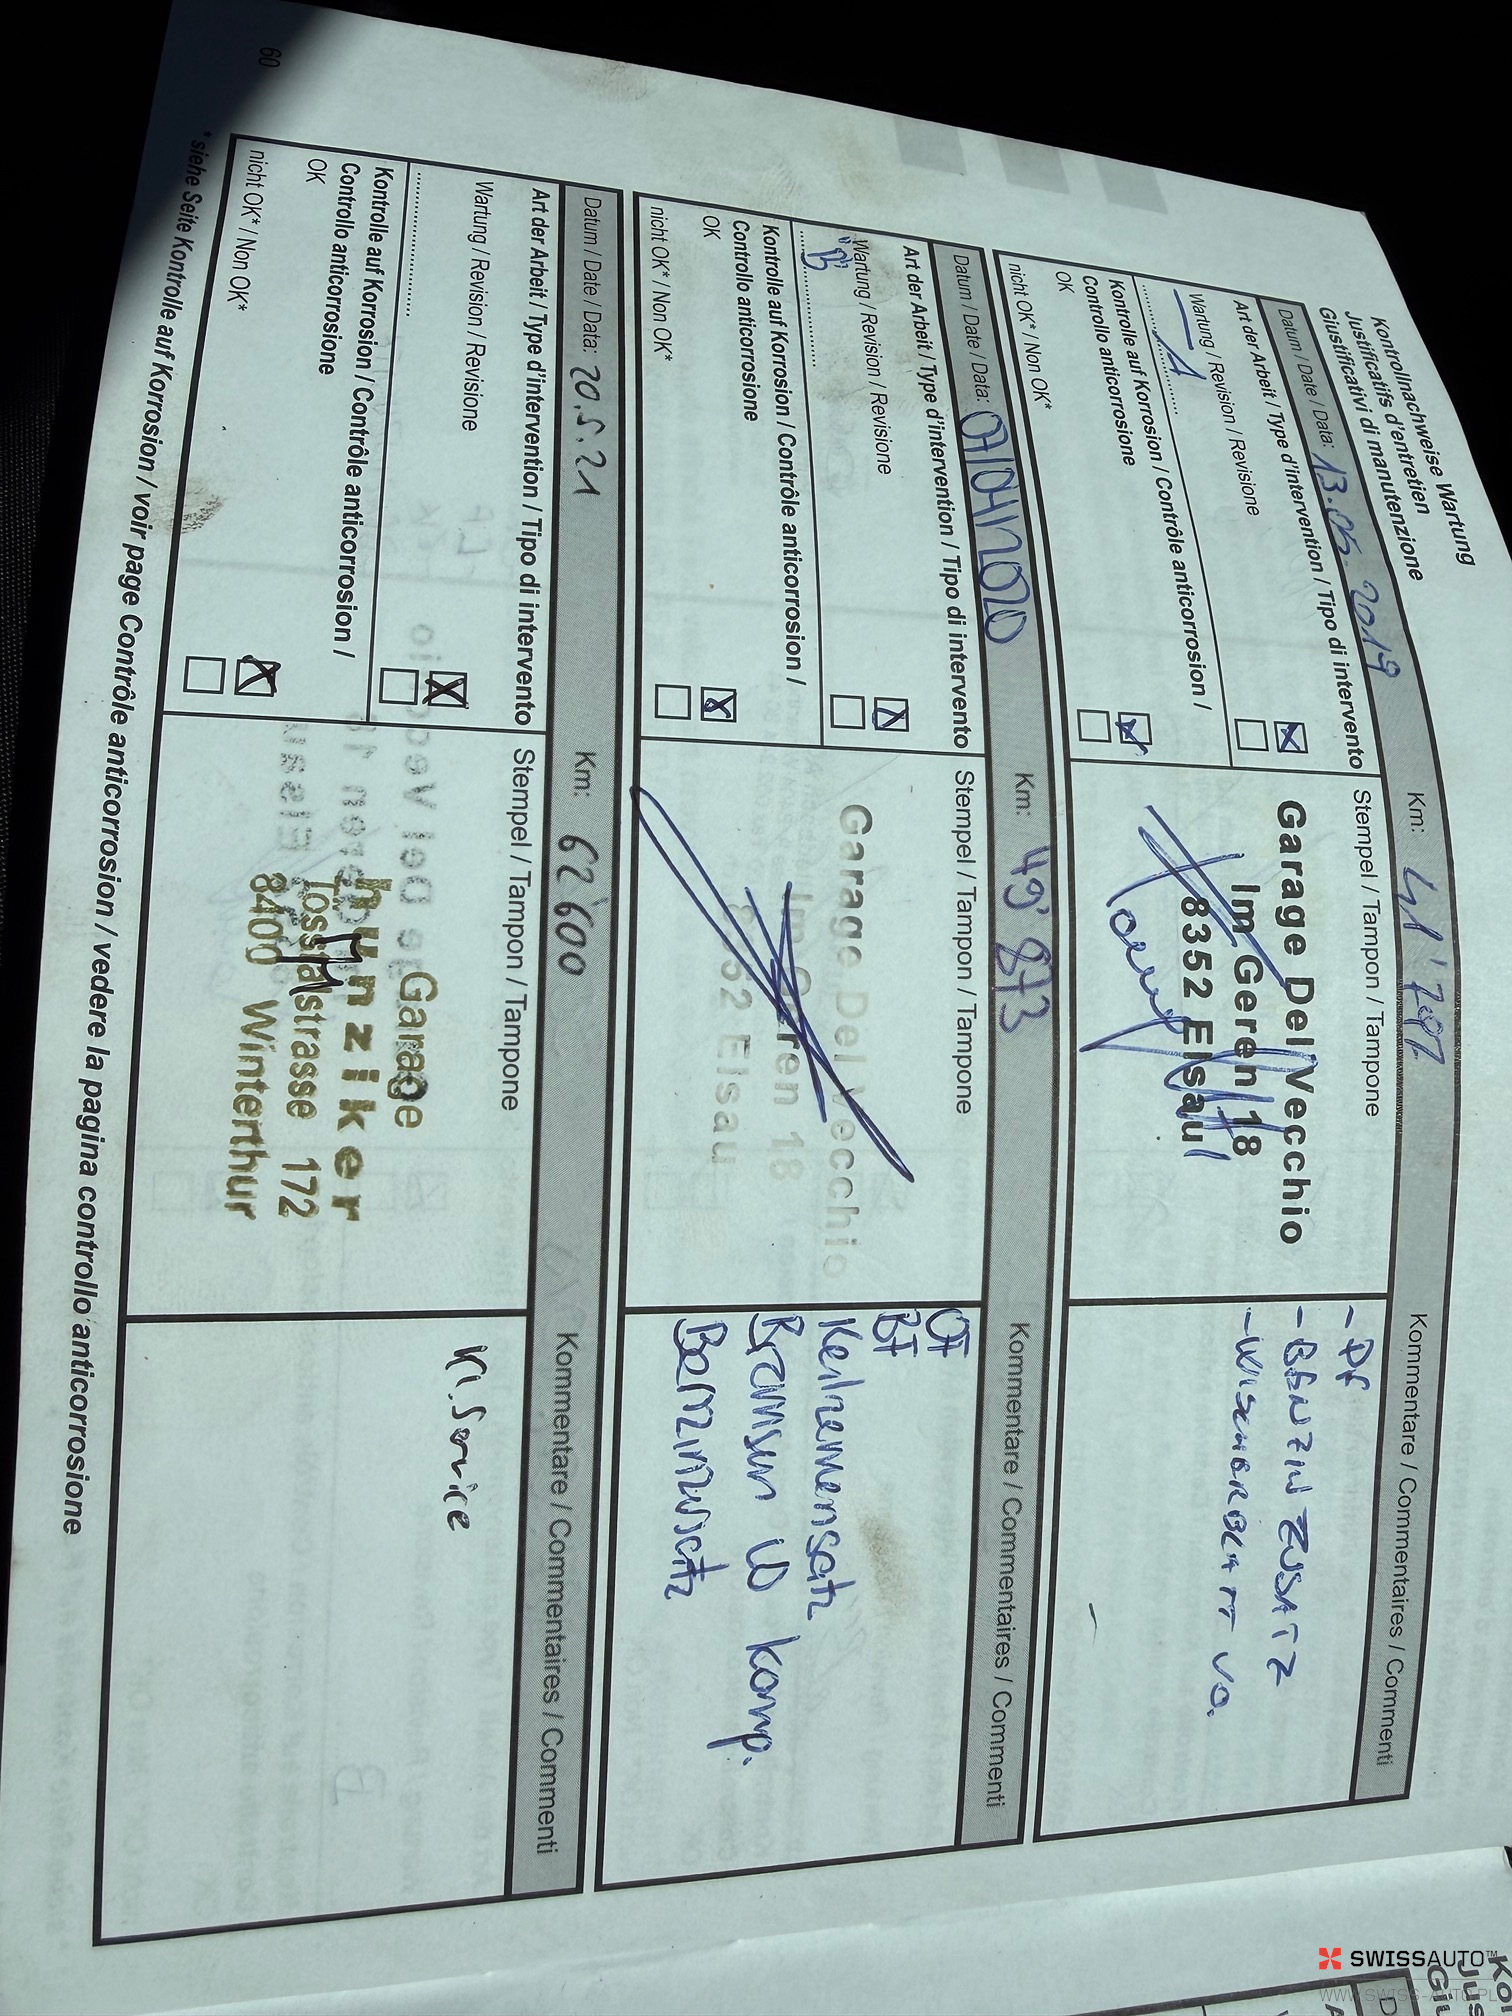 Kontrollnachweise Wartung
Justificatifs d'entretien
Giustificativi di manutenzione
Datum / Date / Data: 13.05.2019 Km: 41'792 Kommentare / Commentaires / Commenti
Art der Arbeit / Type d'intervention / Tipo di intervento
Stempel / Tampon / Tampone
Wartung / Revision / Revisione
A
Kontrolle auf Korrosion / Contrôle anticorrosion /
Controllo anticorrosione
OK
nicht OK* / Non OK*
Garage Del Vecchio
Im Geren 18
8352 Elsau
- BENZINZUSATZ
- WISCHERBLATT VO.
Datum / Date / Data: 07/04/2020 Km: 49'873 Kommentare / Commentaires / Commenti
Art der Arbeit / Type d'intervention / Tipo di intervento
Stempel / Tampon / Tampone
Wartung / Revision / Revisione
"B"
Kontrolle auf Korrosion / Contrôle anticorrosion /
Controllo anticorrosione
OK
nicht OK* / Non OK*
Garage Del Vecchio
Im Geren 18
8352 Elsau
OF
BF
Keilriemensatz
Bremsen vo komp.
Benzinzusatz
Datum / Date / Data: 20.5.21 Km: 62'600 Kommentare / Commentaires / Commenti
Art der Arbeit / Type d'intervention / Tipo di intervento
Stempel / Tampon / Tampone
Wartung / Revision / Revisione
Kontrolle auf Korrosion / Contrôle anticorrosion /
Controllo anticorrosione
OK
nicht OK* / Non OK*
Garage
Hunziker
Tösstalstrasse 172
8400 Winterthur
Kl. Service
*siehe Seite Kontrolle auf Korrosion / voir page Contrôle anticorrosion / vedere la pagina controllo anticorrosione
60
SWISSAUTO™
WWW.SWISS-AUTO.PL